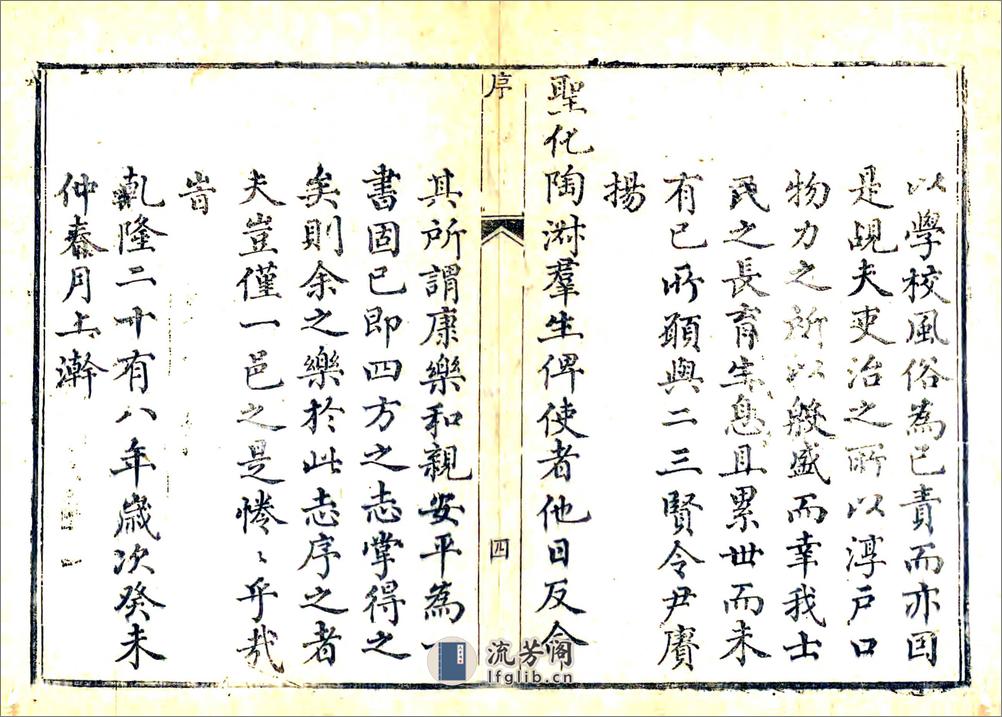 以學校風俗為己責而亦因
是覘夫吏治之所以淳戶口
物力之所以殷盛而幸我士
民之長育生息且累世而未
有已所願與二三賢令尹賡
揚
聖化陶淑羣生俾使者他日反命
序
四
其所謂康樂和親安平為一
書固已即四方之志掌得之
矣則余之樂於此志序之者
夫豈僅一邑之是惓〻乎哉
旹
乾隆二十有八年歲次癸未
仲春月上澣
流芳阁
lfglib.cn